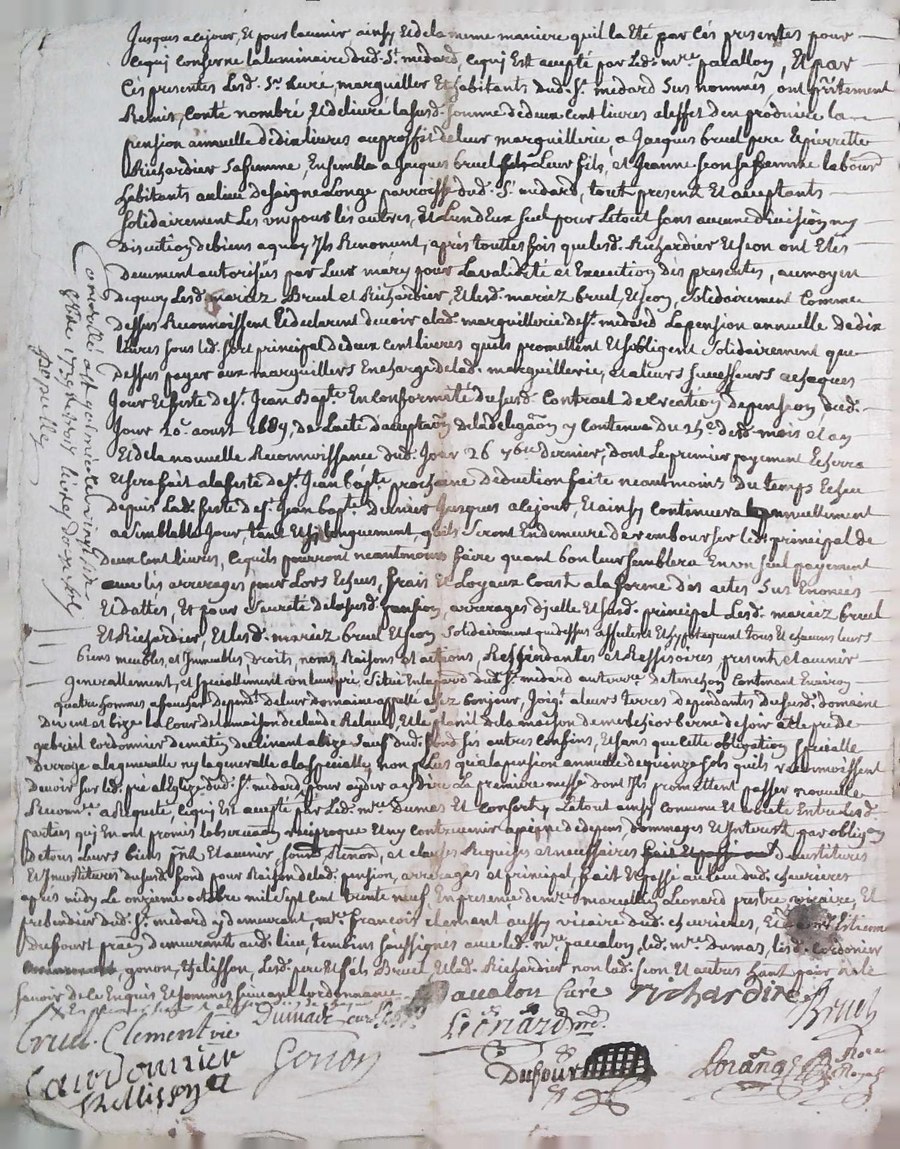 Jusques a ce jour, Et pour lavenir ainsy Et de la meme maniere quil la Eté par les presentes pour
ce quj conserne la luminaire dud. St. medard, ce quj Est accepté par led. mre. pacallon, Et par
Ces presentes Lesd. Sr. Curé, marguiller Et habitants dud. St. medard Sus nommés, ont
Remis, Conté nombré, Et delivré la susd. somme de deux Cent livres a leffet den produire la
pension annuelle de dix livres au proffit de leur marguillerie, a Jacques bruel pere Et pierrette
Richardier Sa femme, Ensembla a Jacques bruel Leur fils, et Jeanne Seon sa femme
habitants au lieu de Saigne Longe parroisse dud. St. medard, tout present Et acceptants
Solidairement Les un pour les autres, Et Lun dEux Seul pour Le tout Sans aucune division ny
Discution de biens a quoy Ils Renoncent, après touttes fois que lesd. Richardier Et Seon ont Etés
Deuement autorisées par Leur mary pour La validité et Execution des presentes, au moyen
de quoy Lesd. mariez Bruel et Richardier, Et lesd. mariez bruel, Et Seon, Solidairement Comme
dessus Reconnoissent Et declarent devoir a lad. marguillerie de St. medard La pension annuelle de dix
livres sous led. sort principal de deux cent livres quils promettent Et sobligent Solidairement que
dessus payer aux marguilliers En charge de lad. marguillerie, et a leurs successeurs a chaques
Jour Et feste de St. Jean Bapte. En conformité du susd. Contract de Creation de pension, dud.
Jour 20e. aoust 1689, de Lacte dacceptaon de la delegaon y Contenue du 25e desd. mois et an
Et de la nouvelle Reconnoissance dud. Jour 26 7bre dernier, dont Le premier payement Echerra
Et sera fait a la feste de St. Jean bapte. prochaine deduction faite neantmoins du temps Echeu
depuis Lad. feste de St. Jean bapte. dernier Jusques a ce jour, Et ainsy continuera annuellement
a Semblable Jour, tant Et si longuement, quils Seront En demeure de rembourser led. principal de
deux Cent livres, ce quils pourront neantmoins faire quant bon leur semblera En un seul payement
avec les arrerages pour Lors Echeus, frais Et Loyaux Coust a la forme des actes Sus Enoncés
Et dattés, Et pour Seureté de la susd. pension, arrerages dycelle Et susd. principal Lesd. mariez bruel
Et Richardier, Et lesd. mariez bruel Et Seon Solidairement que dessus affectent Et hypotequent tous Et chacuns leurs
biens meubles, et Immeubles, droits, noms, Raisons et actions, Ressindantes et Ressisoires, present, et avenir
generallement, et speciallement un leur pré Situé En lad. dud. St. medard au terre de Contenant Environ
quatre hommes a faucher dependt. de leur domaine appellé chez bonjour, Joigt. a leurs terres dependantes du susd. domaine
de vent et bize La Cour de la maison de Et le de la maison de melchior berne de soir Et le pré de
gabriel Cordonnier de matin declinant a bize Sauf dud. fond ses autres Confins, Et sans que cette obligation Specialle
derroge a la generalle ny la generalle a la Specialle, non plus qua la pension annuelle de quinze sols quils reconnoissent
devoir sur led. pré a lEglize dud. St. medard, pour ayder a y dire La premiere messe dont Ils promettent passer nouvelle
Reconnce. a Requete, Ce quj Est accepté par Led. mre. Dumas Et Consort, Le tout ainsy Convenu Et arreté Entre Lesd.
parties quj En ont promis lobservaon reciproque Et ny Contrevenir a peyne de depens, dommages Et Interest par obligaon
de tous Leurs biens pnt. Et avenir, Renon. et clauses Requises et necessaires devestitures
Et Investitures du susd. fond pour Raison de lad. pension, arrerages et principal, fait Et passé au lieu dud. chevrieres
apres midy Le onzieme octobre mil Sept cent trente neuf En presence de mre. marcellin Leonard prestre vicaire, Et
prebendier dud. St. medard y demeurant mre. François Clemant aussy vicaire dud. chevrieres, Estienne
Dufourt demeurants aud. lieu, temoins Soussignes avec led. mre. paccalon, led. mre. dumas, lesd. Cordonier
gonon, thelisson, Lesd. pere Et fils Bruel, Et lad. Richardier non lad. Seon Et autres
savoir de ce Enquis Et Sommez Suivant Lordonnance
pacalon Curé richardier Bruel
Bruel Clement vic Dumas Leonard ptre.
Courdonnier Gonon Dufour Lorange Notaire Royal
thellisson
Controllé a St. galmier le vingt six
8bre 1739